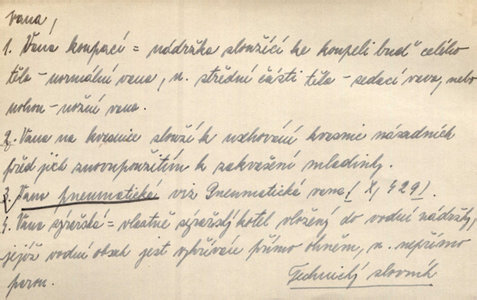 Vana,
1. Vana koupací = nádržka sloužící ke koupeli buď celého
těla - normální vana, n. střední části těla - sedací vana, nebo
nohou - nožní vana.
2. Vana na kvasnice slouží k uchování kvasnic násadních
před jich znovupoužitím k zakvašení mladinky.
3. Vana pneumatická viz Pneumatická vana (X, 429).
4. Vana = vlastně kotel vložený do vodní nádržky,
jejíž vodní obsah jest vyhříván přímo ohněm, n. nepřímo
parou.
Technický slovník